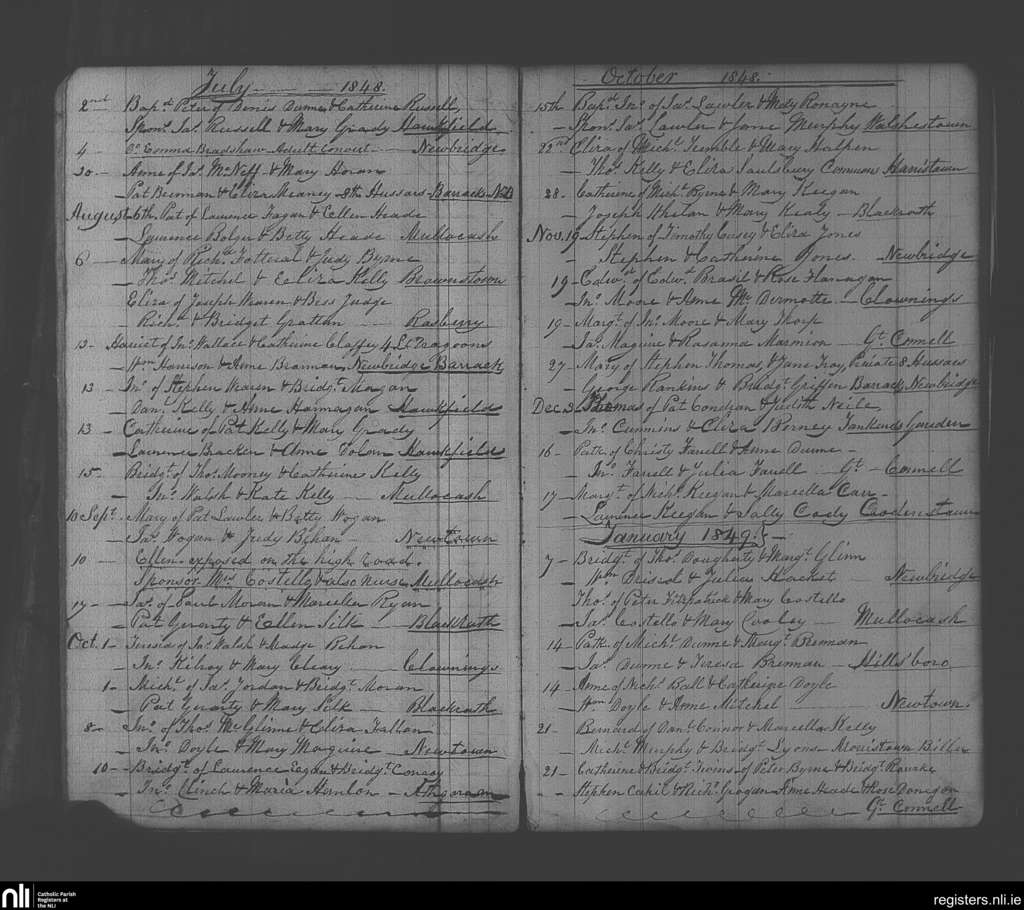 July 1848.
2nd Bapd. Peter of Denis Dunne & Catherine Russell,
Spons. Jas. Russell & Mary Grady Hawkfield
4 - Do. Emma Bradshaw Adult Convert - Newbridge
30 - Anne of Jas. McNeff & Mary Horan
- Pat Brennan & Eliza Meaney - 8th Hussars - Barracks
August 6th, Pat of Lawrence Fagan & Ellen Heade
- Lawrence Bolger & Betty Heade Mullocash
6 - Mary of Richd. Fotteral & Judy Byrne
- Thos. Mitchel & Eliza Kelly Brownstown
Eliza of Joseph Waren & Bess Judge
- Richd. & Bridget Grattan - Rasberry
13 - Harriet of Jno. Wallace & Catherine Claffey 4 Lt. Dragoons
- Wm. Harrison & Anne Brannan, Newbridge Barrack
13 - Jno. of Stephen Waren & Bridgt. Magan
- Danl. Kelly & Anne Hannagan Hawkfield
13 - Catherine of Pat Kelly & Mary Grady
- Laurence Bracken & Anne Dolan Hawkfield
15 - Bridgt. of Thos. Mooney & Catherine Kelly
- Jno. Walsh & Kate Kelly - Mullocash
10 Sept. Mary of Pat Lawler & Betty Wogan
- Jas. Wogan & Judy Behan - Newtown
10 - Ellen exposed on the high road.
Sponsor Mrs. Costello & also Nurse Mullocash
17 - Jas. of Saml. Moran & Marcella Ryan
- Pat Geraty & Ellen Silk - Blackrath
Oct. 1 - Teresa of Jas. Walsh & Madge Behan
- Jno. Kilroy & Mary Cleary - Clownings
1 - Michl. of Jas. Jordan & Bridgt. Moran
- Pat Geraty & Mary Silk - Blackrath
8 - Jno. of Thos. McGlinne & Eliza Fallon
- Jno. Doyle & Mary Maguire - Newtown
10 - Bridgt. of Lawrence Eagan & Bridgt. Conroy
- Jno. Clinch & Maria Hanlon - Athgarvan
October 1848.
15th Bapd. Jno. of Jas. Lawler & Mary Ronayne
- Spons. Jas. Lawler & Jane Murphy Walshestown
22nd Eliza of Michl. Tremble & Mary Halpen
- Thos. Kelly & Eliza Saulsbury Common Hanistown
28 - Catherine of Michl. Byrne & Mary Keegan
- Joseph Whelan & Mary Kealy - Blackrath
Nov. 19 - Stephen of Timothy Casey & Eliza Jones
- Stephen & Catherine Jones. - Newbridge
19 - Edwd. of Edwd. Brasil & Rose Flanagan
- Jno. Moore & Anne McDermotte - Clownings
19 - Margt. of Jno. Moore & Mary Thorp
- Jas. Maguire & Rosanna Marmion - Gt. Connell
27 - Mary of Stephen Thomas & Jane Fray, Private 8 Hussars
- George Rankins & Bridgt. Griffin Barrack, Newbridge
Dec. 3 - Thomas of Pat Condran & Judith Neile
- Jno. Cummins & Eliza Berney Tankards Garden
16 - Patk. of Christy Farrell & Anne Dunne -
- Jno. Farrell & Julia Farrell - Gt. - Connell
17 - Margt. of Nichs. Keegan & Marcella Carr -
- Lawrence Keegan & Sally Cody Codenstown
January 1849.
7 - Bridgt. of Thos. Dougherty & Margt. Glinn
- Wm. Driscol & Julia Hacket Newbridge
Thos. of Peter Fitzpatrick & Mary Costello
- Jas. Costello & Mary Cooley - Mullocash
14 - Patk. of Michl. Dunne & Margt. Brennan
- Jas. Dunne & Teresa Brennan - Hillsboro
14 - Anne of Michl. Ball & Catherine Doyle
- Wm. Doyle & Anne Mitchel - Newtown.
21 - Bernard of Danl. Connor & Marcella Kelly
- Michl. Murphy & Bridgt. Lyons - Morristown Biller
21 - Catherine & Bridgt. Twins - of Peter Byrne & Bridgt. Rourke
- Stephen Cahil & Richd. Grogan Anne Heade & Rose Donegan
Gt. Connell
nli
Catholic Parish
Registers at
the NLI
registers.nli.ie